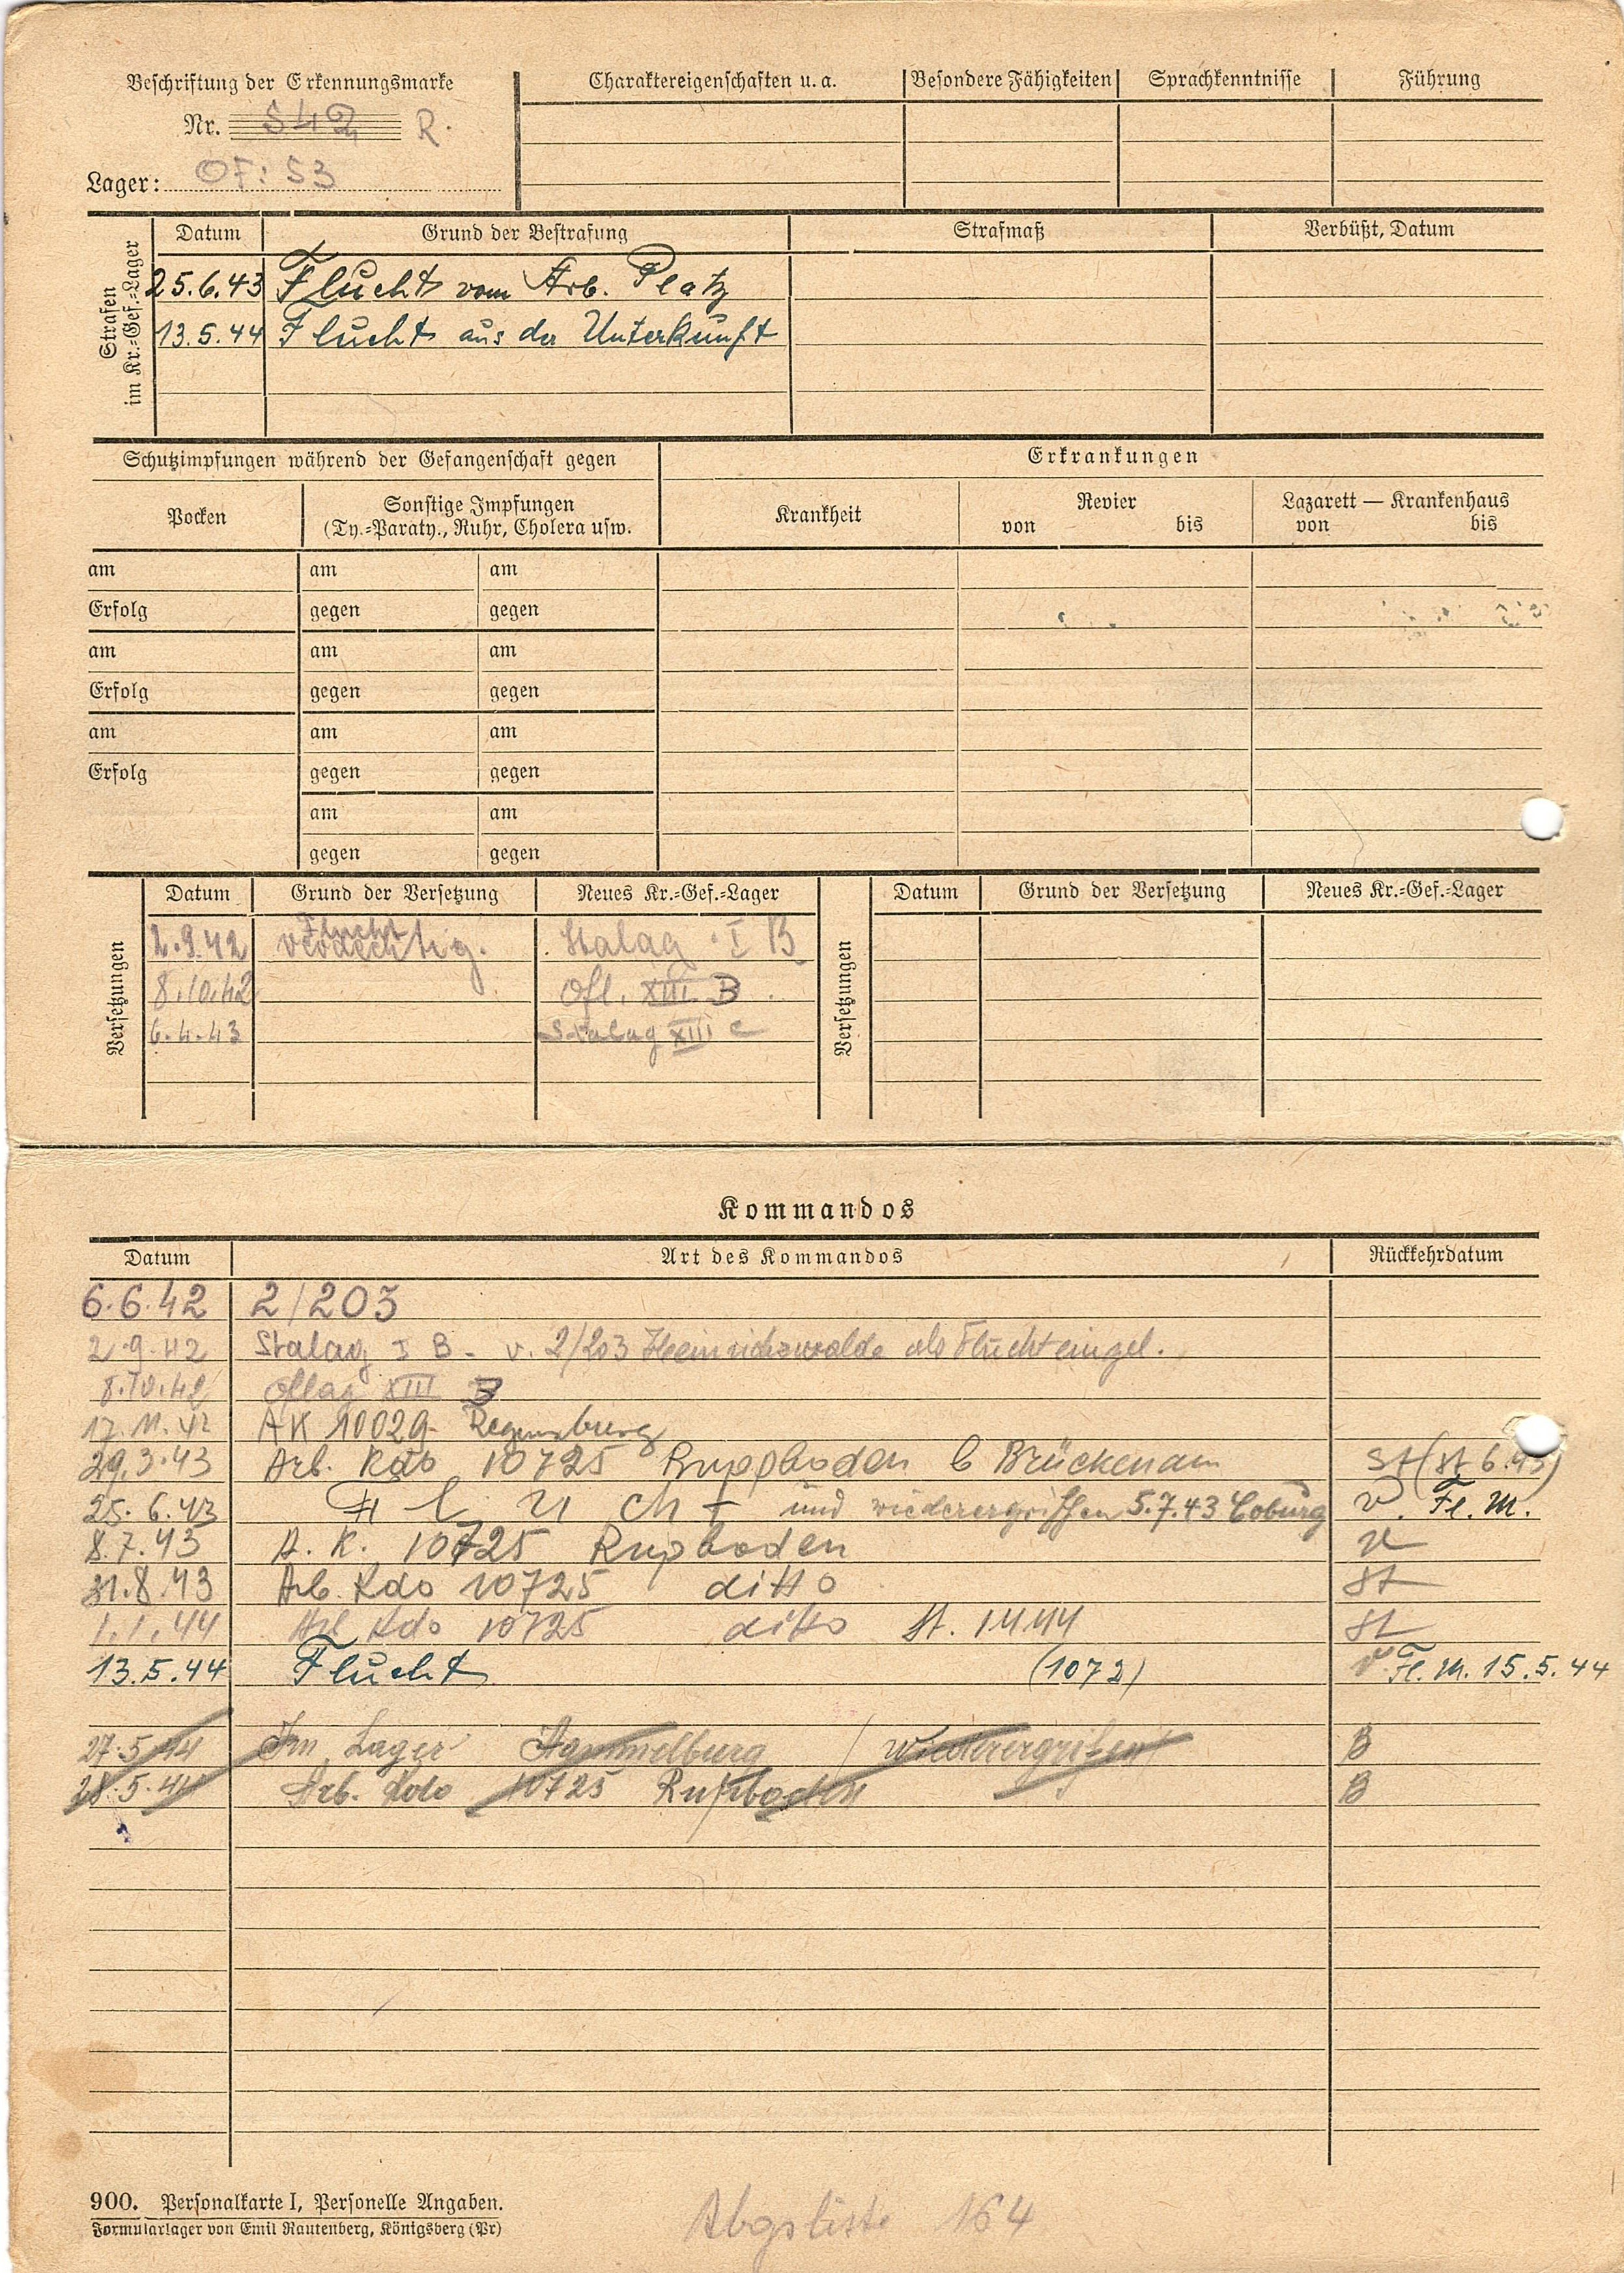 Beschriftung der Erkennungsmarke
Nr. 542 R.
Lager: OF: 53
Charaktereigenschaften u. a. Besondere Fähigkeiten Sprachkenntnisse Führung
Strafen im Kr.=Gef.=Lager
Datum Grund der Bestrafung Strafmaß Verbüßt, Datum
25.6.43 Flucht vom Arb. Platz
13.5.44 Flucht aus der Unterkunft
Schutzimpfungen während der Gefangenschaft gegen
Erkrankungen
Pocken
Sonstige Impfungen
(Ty.=Paraty., Ruhr, Cholera usw.
Krankheit
Revier
von bis
Lazarett — Krankenhaus
von bis
am am am
Erfolg gegen gegen
am am am
Erfolg gegen gegen
am am am
Erfolg gegen gegen
am am
gegen gegen
Versetzungen
Datum Grund der Versetzung Neues Kr.=Gef.=Lager
2.9.42 Flucht verdächtig. Stalag I B
8.10.42 Ofl. XIII B
6.4.43 Stalag XIII C
Versetzungen
Datum Grund der Versetzung Neues Kr.=Gef.=Lager
Kommandos
Datum Art des Kommandos Rückkehrdatum
6.6.42 2/203
2.9.42 Stalag I B - v. 2/203 Heinrichswalde als Flucht eingel.
8.10.42 Oflag XIII B
17.11.42 AK 10029 Regensburg
29.3.43 Arb. Kdo 10725 Ruppboden b Brückenam St (St 6.43)
25.6.43 Flucht und wiederergriffen 5.7.43 Coburg v. Fl. M.
8.7.43 A. K. 10725 Rupboden
31.8.43 Arb. Kdo 10725 ditto St
1.1.44 Arb Kdo 10725 ditto St. 1.1.44 St
13.5.44 Flucht (1072) v Fl. M. 15.5.44
27.5.44 Im Lager Hammelburg / wiederergriffen B
28.5.44 Arb. Kdo 10725 Rupboden B
900. Personalkarte I, Personelle Angaben.
Formularlager von Emil Rautenberg, Königsberg (Pr)
Abgsliste 164